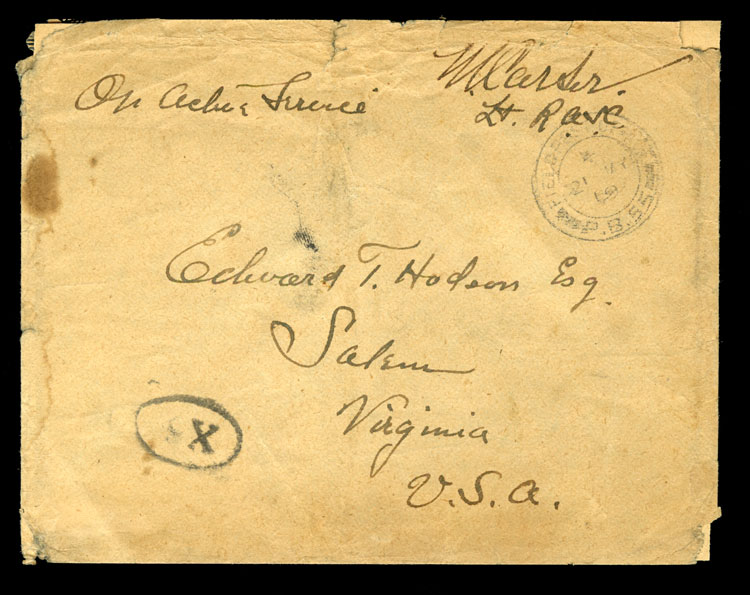 On Active Service
M Carter.
Lt. R.A.V.C.
FIELD P.B.55
21
Edward T. Hodson Esq.
Salem
Virginia
U.S.A.
X